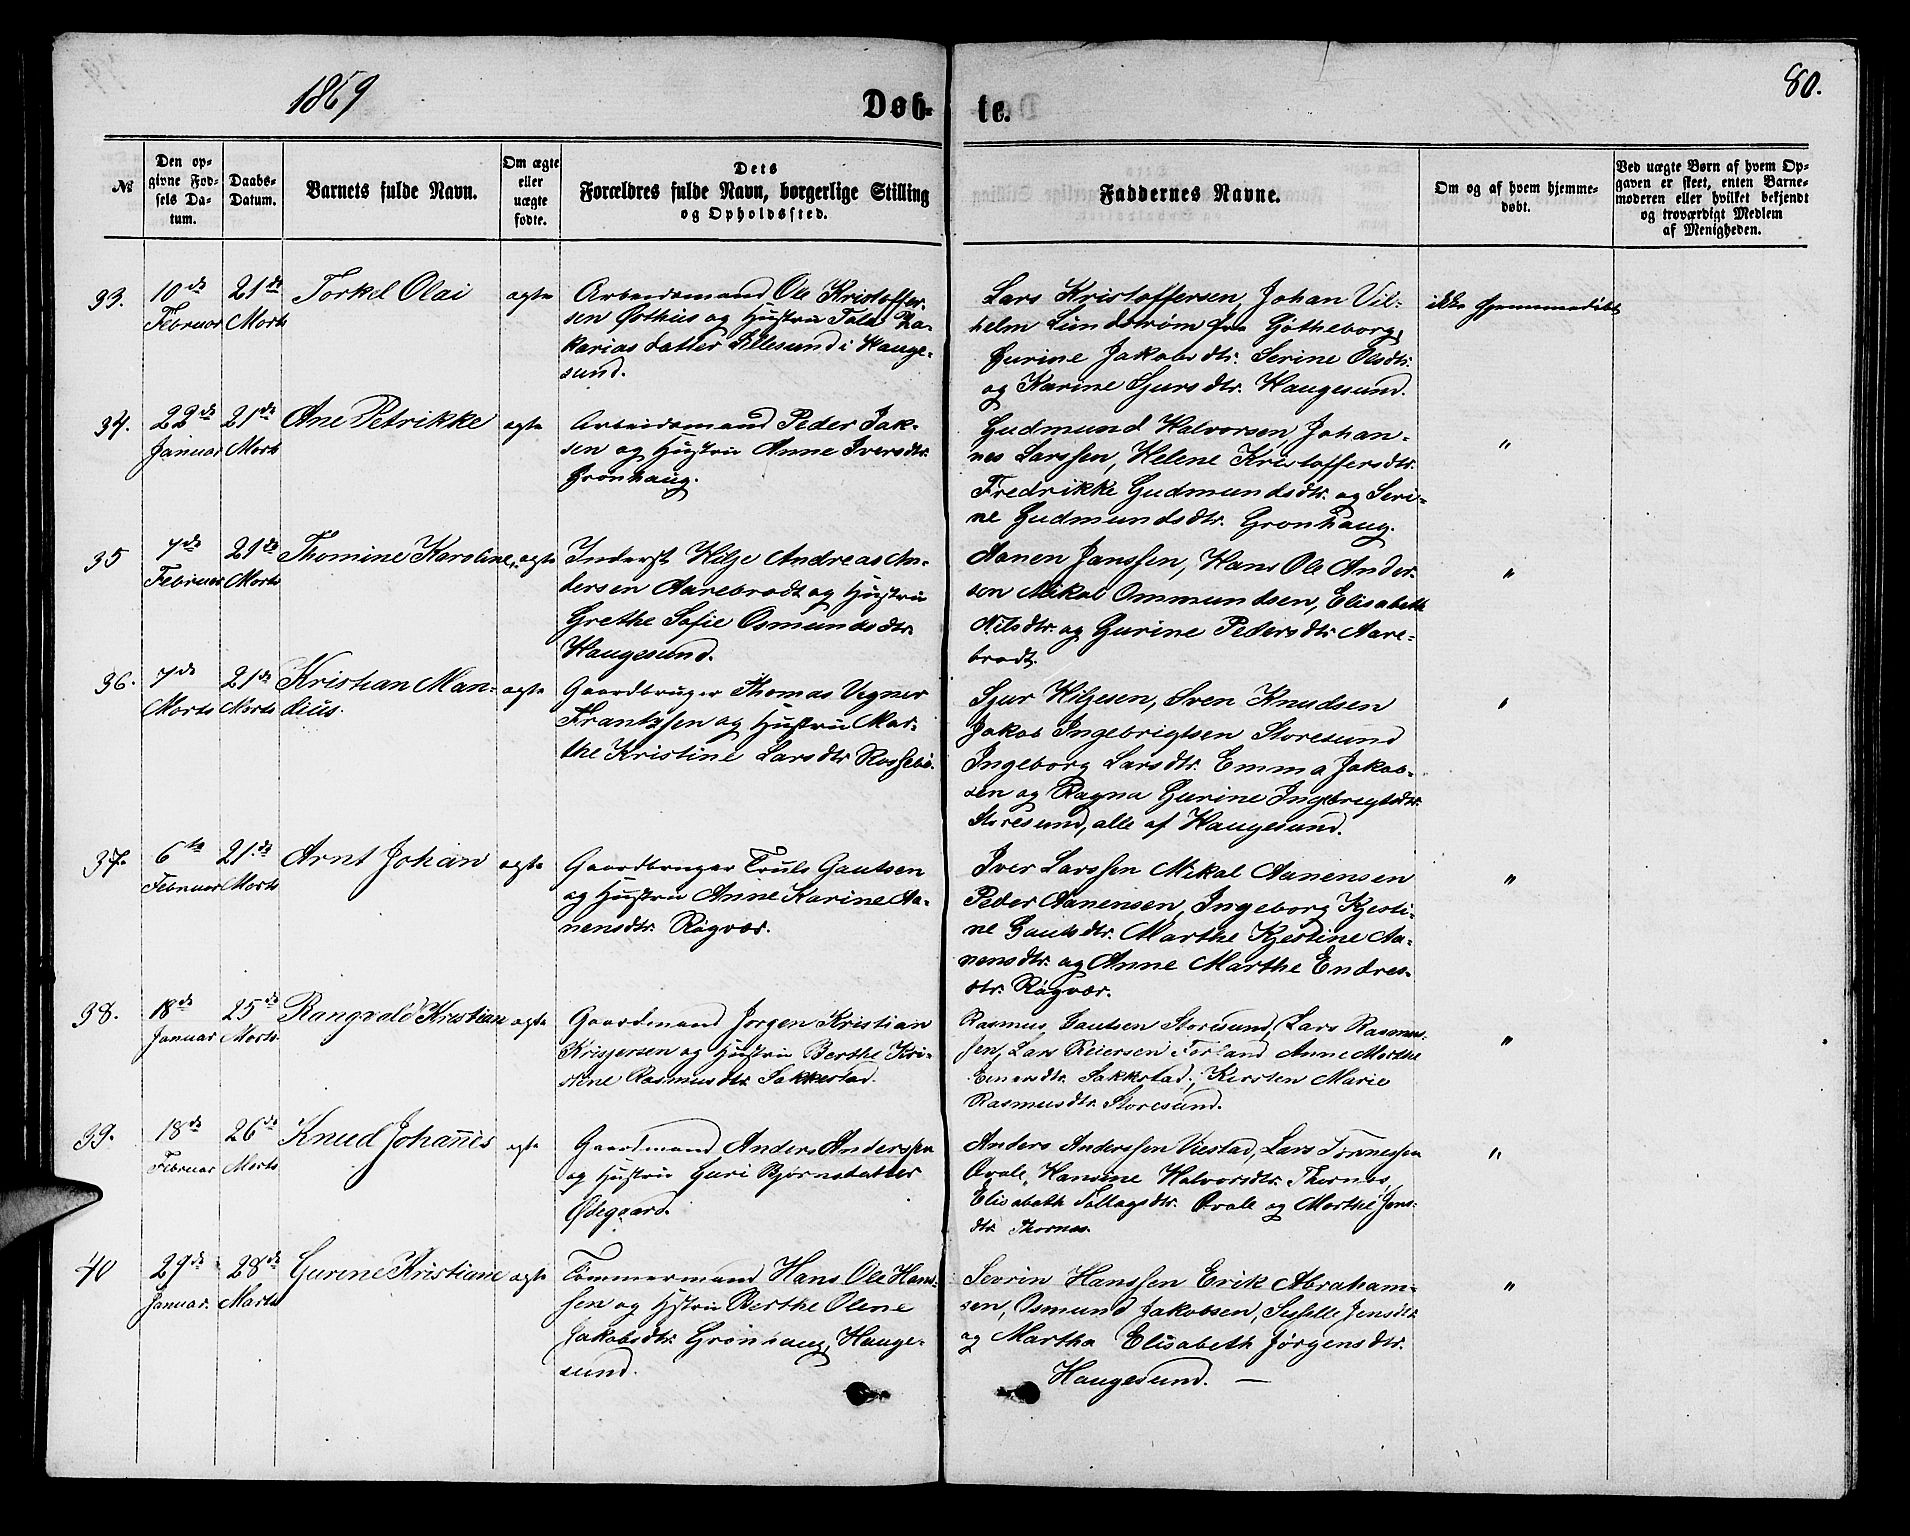 1869
Døb-
te.
80.
№
Den op-
givne Fød-
sels Da-
tum.
Daabs-
Datum.
Barnets fulde Navn.
Om ægte
eller
uægte
fødte.
Dets
Forældres fulde Navn, borgerlige Stilling
og Opholdssted.
Faddernes Navne.
Om og af hvem hjemme-
døbt.
Ved uægte Børn af hvem Op-
gaven er skeet, enten Barne-
moderen eller hvilket bekjendt
og troværdigt Medlem
af Menigheden.
33.
10de
Februar
21de
Marts
Torkel Olai
ægte
Arbeidsmand Ole Kristoffer-
sen Østhus og Hustru Tala Za-
karias datter Lillesund i Hauge-
sund.
Lars Kristoffersen, Johan Vil-
helm Lundstrøm fra Gøtheborg,
Gurine Jakobsdtr. Serine Olsdtr.
og Karine Sjursdtr. Haugesund.
ikke hjemmedøbt
34.
22de
Januar
21de
Marts
Ane Petrikke
ægte
Arbeidsmand Peder Jak-
sen og Hustru Anne Iversdtr.
Grønhaug.
Gudmund Halvorsen, Johan-
nes Larssen, Helene Kristoffersdtr.
Fredrikke Gudmundsdtr. og Seri-
ne Gudmundsdtr. Grønhaug.
"
35
7de
Februar
21de
Marts
Thomine Karoline,
ægte
Inderst Hilje Andreas An-
dersen Aarebrodt og Hustru
Grethe Sofie Osmundsdtr.
Haugesund.
Aanen Janssen, Hans Ole Ander-
sen Mikal Ommundsen, Elisabeth
Nilsdtr. og Gurine Pedersdtr. Aare-
brodt.
"
36.
7de
Marts
21de
Marts
Kristian Man-
dius.
ægte
Gaardbruger Thomas Vegner
Frantzsen og Hustru Mar-
the Kristine Larsdtr. Rossebø.
Sjur Hiljesen, Sven Knudsen
Jakob Ingebrigtsen Storesund
Ingeborg Larsdtr. Emma Jakob-
sen og Ragna Gurine Ingebrigtsdtr.
Storesund, alle af Haugesund.
"
37.
6te
Februar
21de
Marts
Arnt Johan
ægte
Gaardbruger Truls Gautsen
og Hustru Anne Karine Aa-
nensdtr. Røgvær.
Iver Larssen Mikal Aanensen
Peder Aanensen, Ingeborg Kjesti-
ne Gautsdtr. Marthe Kjestine Aa-
nensdtr. og Anne Marthe Endres-
dtr. Røgvær.
"
38.
18de
Januar
25de
Marts
Rangvald Kristian
ægte
Gaardmand Jørgen Kristian
Krisjersen og Hustru Berthe Kri-
stine Rasmusdtr. Sakkestad.
Rasmus Gautsen Storesund, Lars Rasmus-
sen, Lars Reiersen Førland Anne Marthe
Einersdtr. Sakkstad, Kirsten Marie
Rasmusdtr. Storesund.
"
39.
18de
Februar
26de
Marts
Knud Johannes
ægte
Gaardmand Anders Anderssen
og Hustru Guri Bjørnsdatter
Ødegaard.
Anders Anderssen Viestad, Lars Tønnessen
Qvale, Hansine Halvorsdtr. Thornes,
Elisabeth Tollagsdtr. Qvale og Marthe Jens-
dtr. Thornes.
"
40
29de
Januar.
28de
Marts
Gurine Kristiane
ægte
Tømmermand Hans Ole Hans-
sen og Hstru Berthe Olene
Jakobsdtr. Grønhaug, Hauge-
sund.
Sevrin Hanssen Erik Abraham-
sen, Osmund Jakobsen, Sessille Jensdtr.
og Martha Elisabeth Jørgensdtr.
Haugesund. —
"